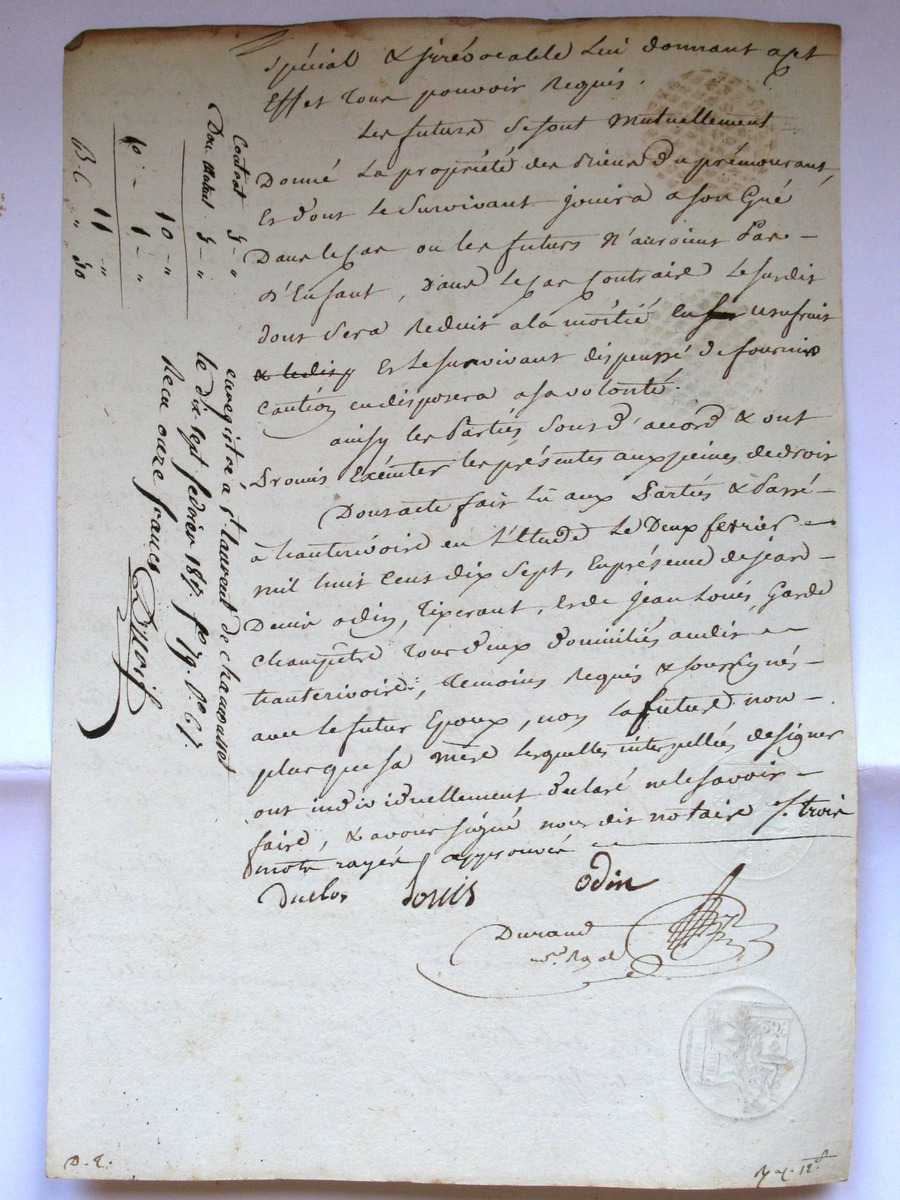 spécial & irrévocable Lui donnant a cet
Effet Tous pouvoir Requis.
Les futurs se sont mutuellement
Donné La propriété des Biens Du prémourant,
Et dont Le Survivant jouira a son Gré
Dans le cas ou les futurs N'auroint Pas —
d'Enfant, Dans le cas Contraire Le susdit
dont sera Reduit a la moitié en usufruit
Et Le survivant dispensé de fournir
Caution en disposera a sa volonté.
ainsy les Partiés Sont d'accord & ont
Promis Exécuter les présentes aux peines de droit
Dont acte fait Lû aux Partiés & Passé —
à hauterivoire en L'Etude Le Deux fevrier —
mil huit Cent dix Sept, En présence de jean
Denis odin, Tixerant, Et de jean Louis, Garde
Champêtre Tous deux Domiciliés audit —
hauterivoire, Temoins Requis & soussignés —
avec le futur Epoux, non la future non —
plus que sa mère Lesquelles interpellées de signer
ont individuellement Déclaré ne le savoir —
faire, & avons signé nous dit notaire %. trois
mots rayés approuvés
Duclos Louis odin
Durand
no.re Royal
Contrat 3 - "
Don. Mutuel 3 - "
10 - "
1 - "
11 "
B. C. " 50
enregistré à St laurent de chamousset
le dix sept fevrier 1817 fo 79. Vo C 7.
Recu onze francs
D. E.